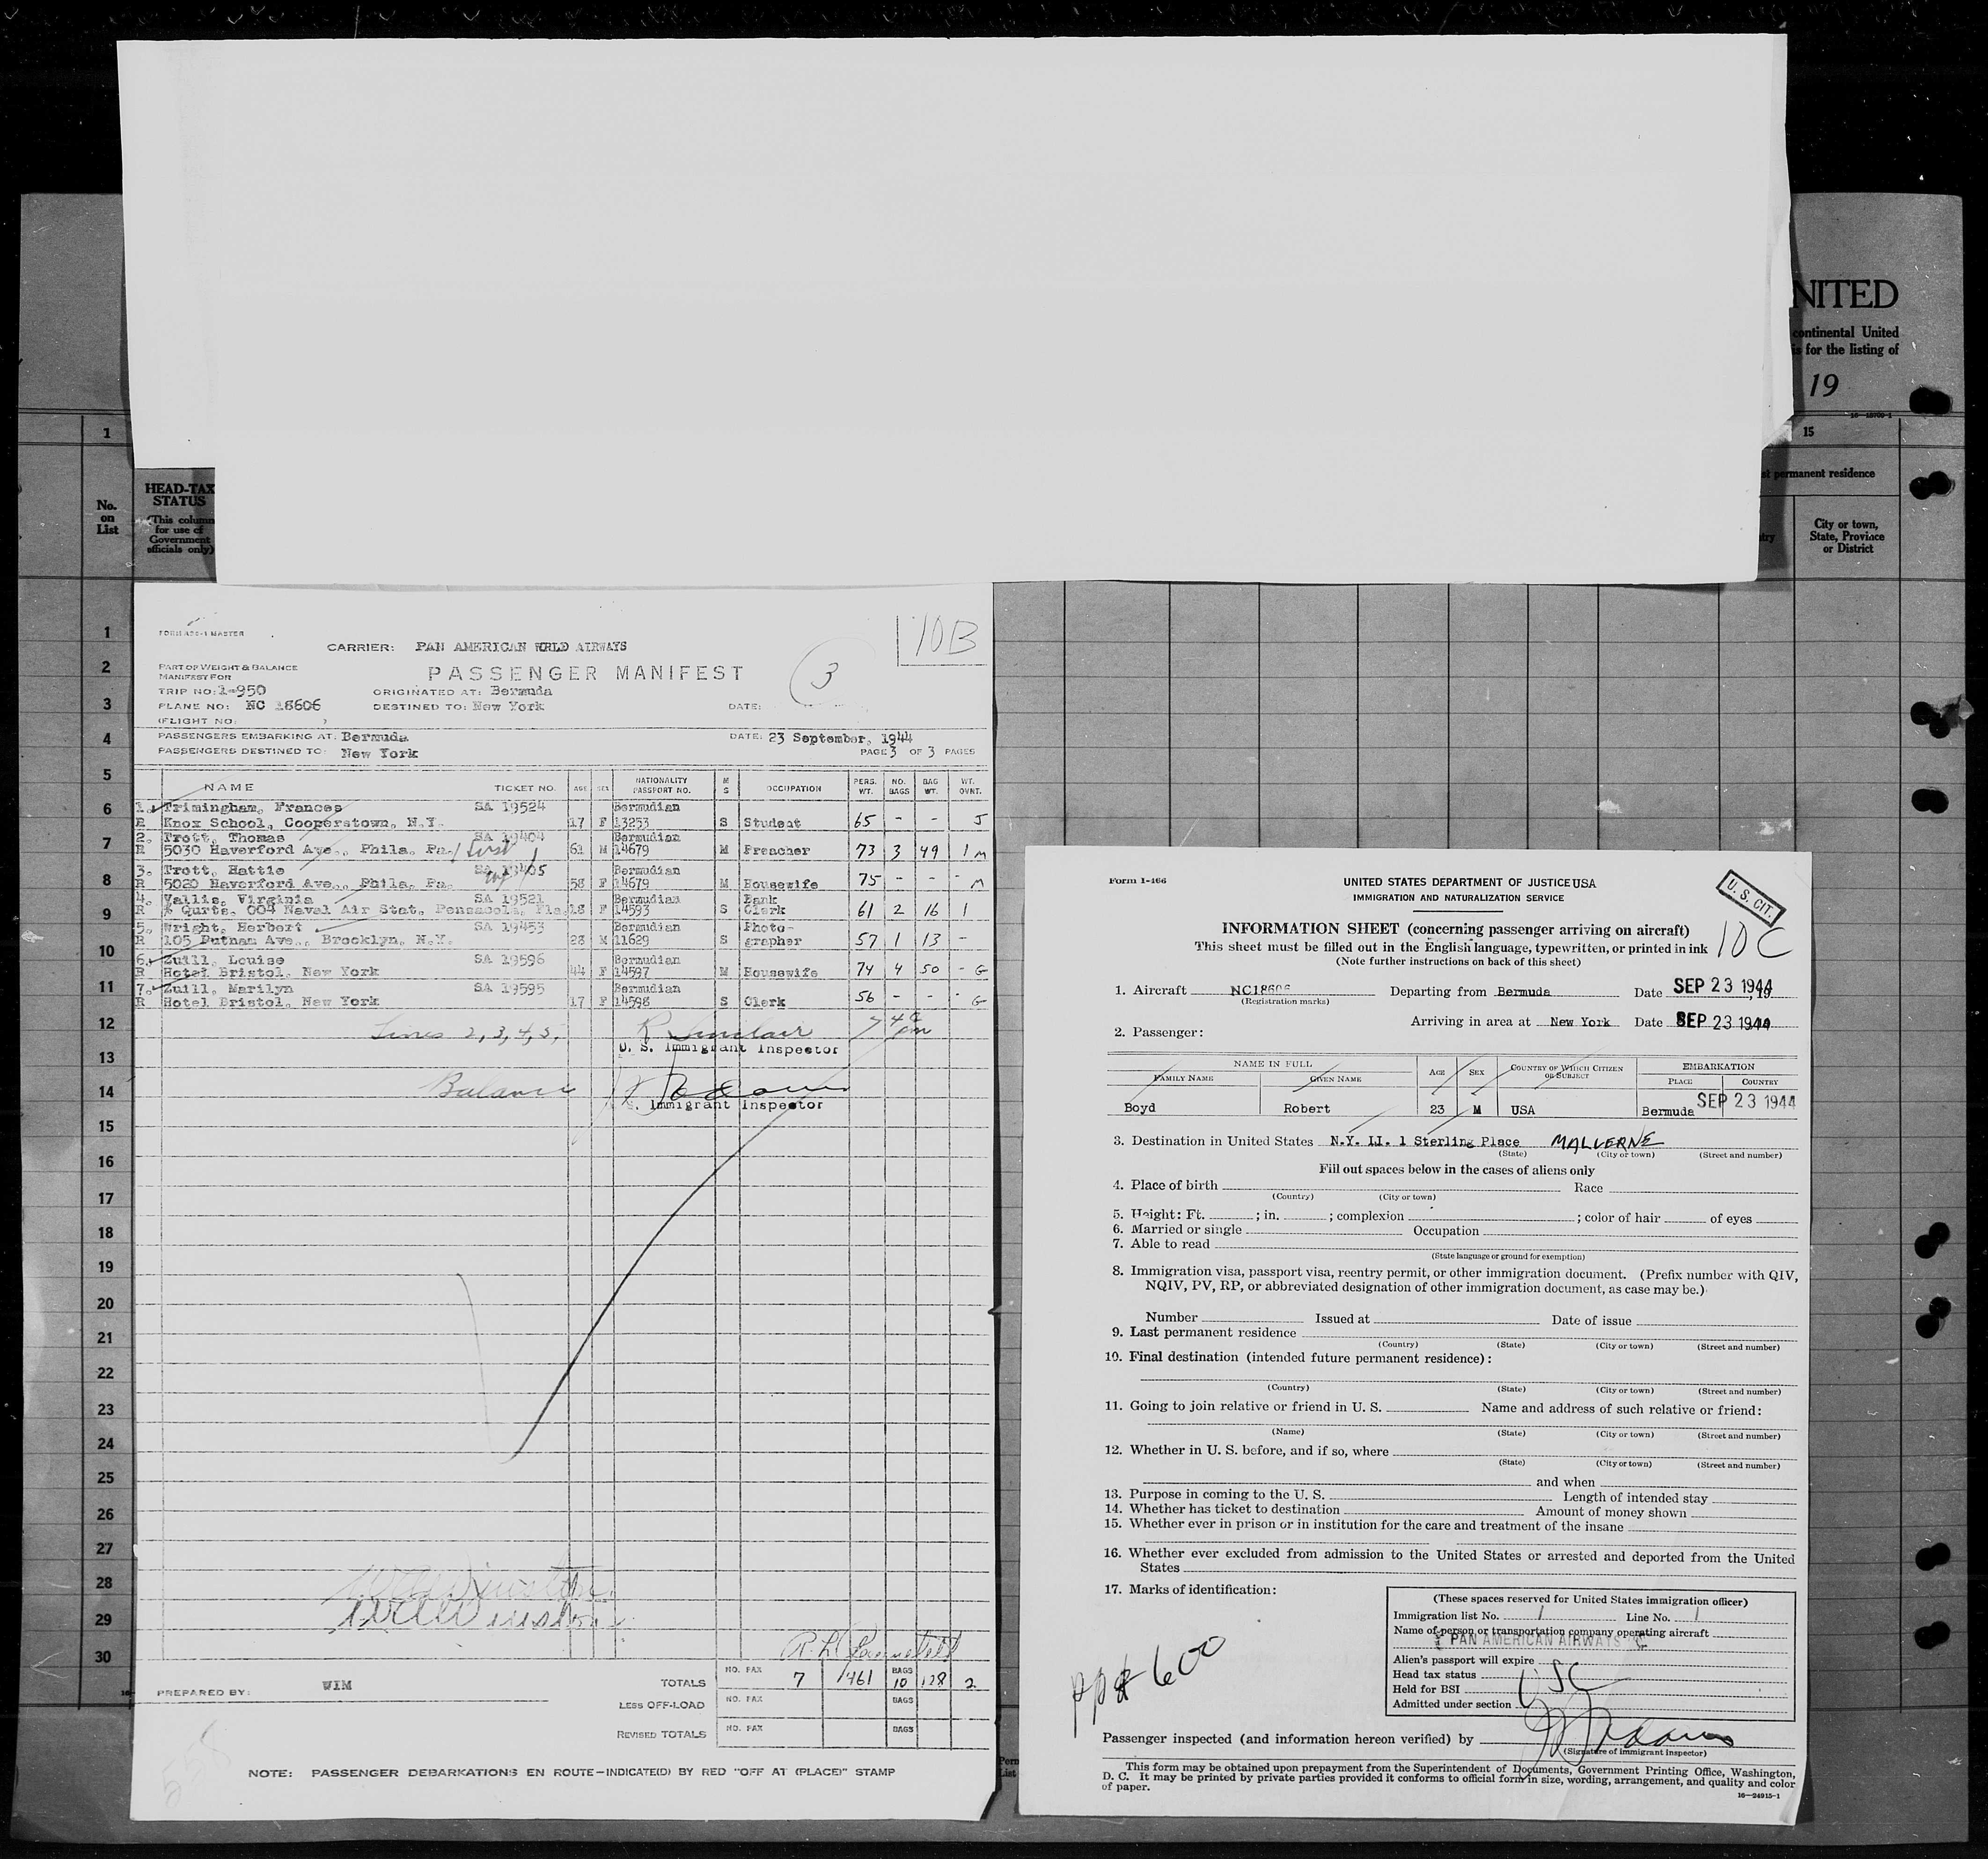 NITED
continental United
is for the listing of
19
16—18709-1
1
15
st permanent residence
No.
on
List
HEAD-TAX
STATUS
(This column
for use of
Government
officials only)
City or town,
State, Province
or District
1
2
3
4
5
6
7
8
9
10
11
12
13
14
15
16
17
18
19
20
21
22
23
24
25
26
27
28
29
30
10B
3
CARRIER: PAN AMERICAN WORLD AIRWAYS
PART OF WEIGHT & BALANCE
MANIFEST FOR
PASSENGER MANIFEST
TRIP NO: 1-950
ORIGINATED AT: Bermuda
PLANE NO: NC 18606
DESTINED TO: New York
DATE:
(FLIGHT NO: )
PASSENGERS EMBARKING AT: Bermuda
DATE: 23 September, 1944
PASSENGERS DESTINED TO: New York
PAGE 3 OF 3 PAGES
NAME TICKET NO. AGE SEX NATIONALITY PASSPORT NO. M S OCCUPATION PERS. WT. NO. BAGS BAG WT. WT. OVRT.
1. Trimingham, Frances SA 19524 Bermudian
R Knox School, Cooperstown, N.Y. 17 F 13253 S Student 65 - - J
2. Trott, Thomas SA 19404 Bermudian
R 5030 Haverford Ave., Phila, Pa. 61 M 14679 M Preacher 73 3 49 1 M
3. Trott, Hattie SA 19405 Bermudian
R 5020 Haverford Ave., Phila, Pa. 58 F 14679 M Housewife 75 - - - M
4. Vallis, Virginia SA 19521 Bermudian Bank
R % Qurts. 004 Naval Air Stat, Pensacola, Fla. 18 F 14593 S Clerk 61 2 16 1
5. Wright, Herbert SA 19453 Bermudian Photo-
R 105 Putnam Ave., Brooklyn, N.Y. 28 M 11629 S grapher 57 1 13 -
6. Zuill, Louise SA 19596 Bermudian
R Hotel Bristol, New York 44 F 14597 M Housewife 74 4 50 - G
7. Zuill, Marilyn SA 19595 Bermudian
R Hotel Bristol, New York 17 F 14598 S Clerk 56 - - - G
Lines 2, 3, 4, 5, R Sinclair
U. S. Immigrant Inspector
Balance
. Immigrant Inspector
TOTALS NO. PAX 7 461 BAGS 10 128 2
PREPARED BY: WIM
LESS OFF-LOAD NO. PAX BAGS
REVISED TOTALS NO. PAX BAGS
NOTE: PASSENGER DEBARKATIONS EN ROUTE—INDICATE(D) BY RED "OFF AT (PLACE)" STAMP
Form I-466
UNITED STATES DEPARTMENT OF JUSTICE USA
IMMIGRATION AND NATURALIZATION SERVICE
U. S. CIT.
10C
INFORMATION SHEET (concerning passenger arriving on aircraft)
This sheet must be filled out in the English language, typewritten, or printed in ink
(Note further instructions on back of this sheet)
1. Aircraft NC18606 Departing from Bermuda Date SEP 23 1944, 19
(Registration marks)
Arriving in area at New York Date SEP 23 1944
2. Passenger:
NAME IN FULL
FAMILY NAME GIVEN NAME AGE SEX COUNTRY OF WHICH CITIZEN OR SUBJECT EMBARKATION
PLACE COUNTRY
Boyd Robert 23 M USA Bermuda SEP 23 1944
3. Destination in United States N.Y. LI. 1 Sterling Place MALVERNE
(State) (City or town) (Street and number)
Fill out spaces below in the cases of aliens only
4. Place of birth Race
(Country) (City or town)
5. Height: Ft. ; in. ; complexion ; color of hair of eyes
6. Married or single Occupation
7. Able to read
(State language or ground for exemption)
8. Immigration visa, passport visa, reentry permit, or other immigration document. (Prefix number with QIV,
NQIV, PV, RP, or abbreviated designation of other immigration document, as case may be.)
Number Issued at Date of issue
9. Last permanent residence
(Country) (State) (City or town) (Street and number)
10. Final destination (intended future permanent residence):
(Country) (State) (City or town) (Street and number)
11. Going to join relative or friend in U. S. Name and address of such relative or friend:
(Name) (State) (City or town) (Street and number)
12. Whether in U. S. before, and if so, where
(State) (City or town) (Street and number)
and when
13. Purpose in coming to the U. S. Length of intended stay
14. Whether has ticket to destination Amount of money shown
15. Whether ever in prison or in institution for the care and treatment of the insane
16. Whether ever excluded from admission to the United States or arrested and deported from the United
States
17. Marks of identification:
(These spaces reserved for United States immigration officer)
Immigration list No. 1 Line No. 1
Name of person or transportation company operating aircraft
PAN AMERICAN AIRWAYS
Alien's passport will expire
Head tax status
Held for BSI
Admitted under section
USC
600
Passenger inspected (and information hereon verified) by
(Signature of immigrant inspector)
This form may be obtained upon prepayment from the Superintendent of Documents, Government Printing Office, Washington,
D. C. It may be printed by private parties provided it conforms to official form in size, wording, arrangement, and quality and color
of paper.
16—24915-1